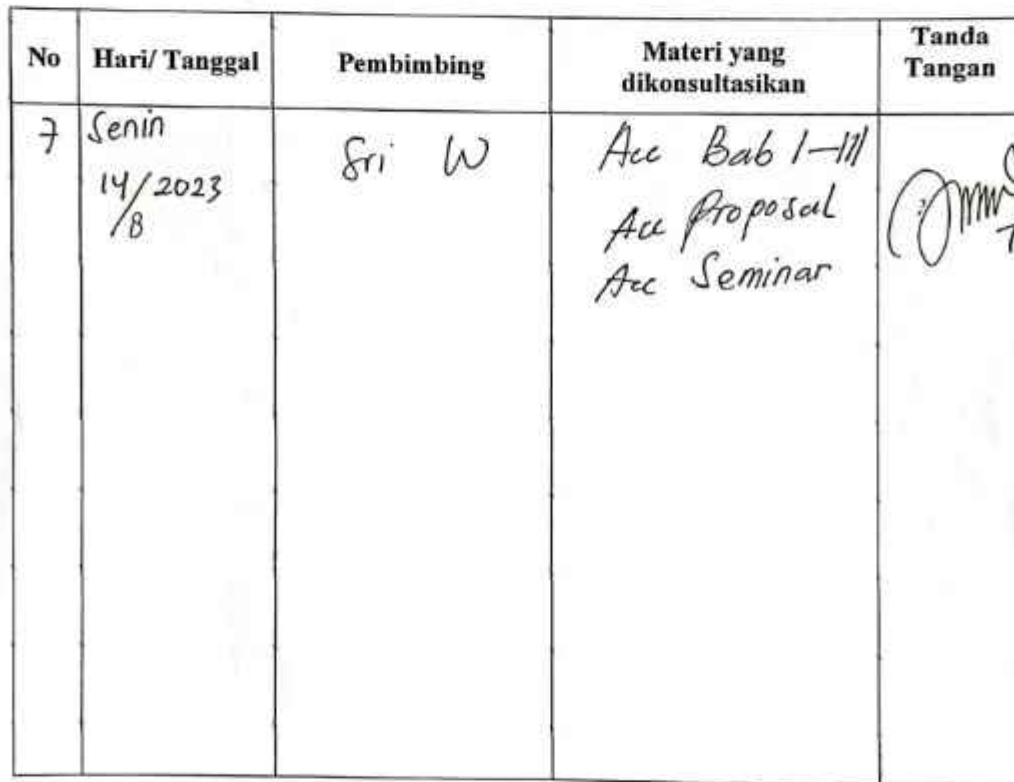 No Hari/ Tanggal Pembimbing Materi yang dikonsultasikan Tanda Tangan
7 Senin Sri W Acc Bab I-III
14/8 2023 Acc Proposal
Acc Seminar